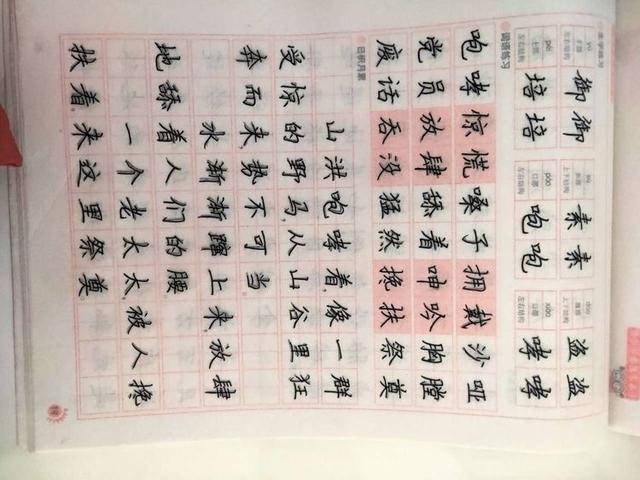 御御 素素 盗盗
培培 咆咆 哮哮
左右结构 口部 左右结构 口部 左右结构
词语练习
咆哮惊慌嗓子拥戴沙哑
党员放肆舔着呻吟胸膛
废话吞没猛然搀扶祭奠
日积月累
山洪咆哮着,像一群
受惊的野马,从山谷里狂
奔而来,势不可当。
水渐渐蹿上来,放肆
地舔着人们的腰。
一个老太太被人搀
扶着,来这里祭奠